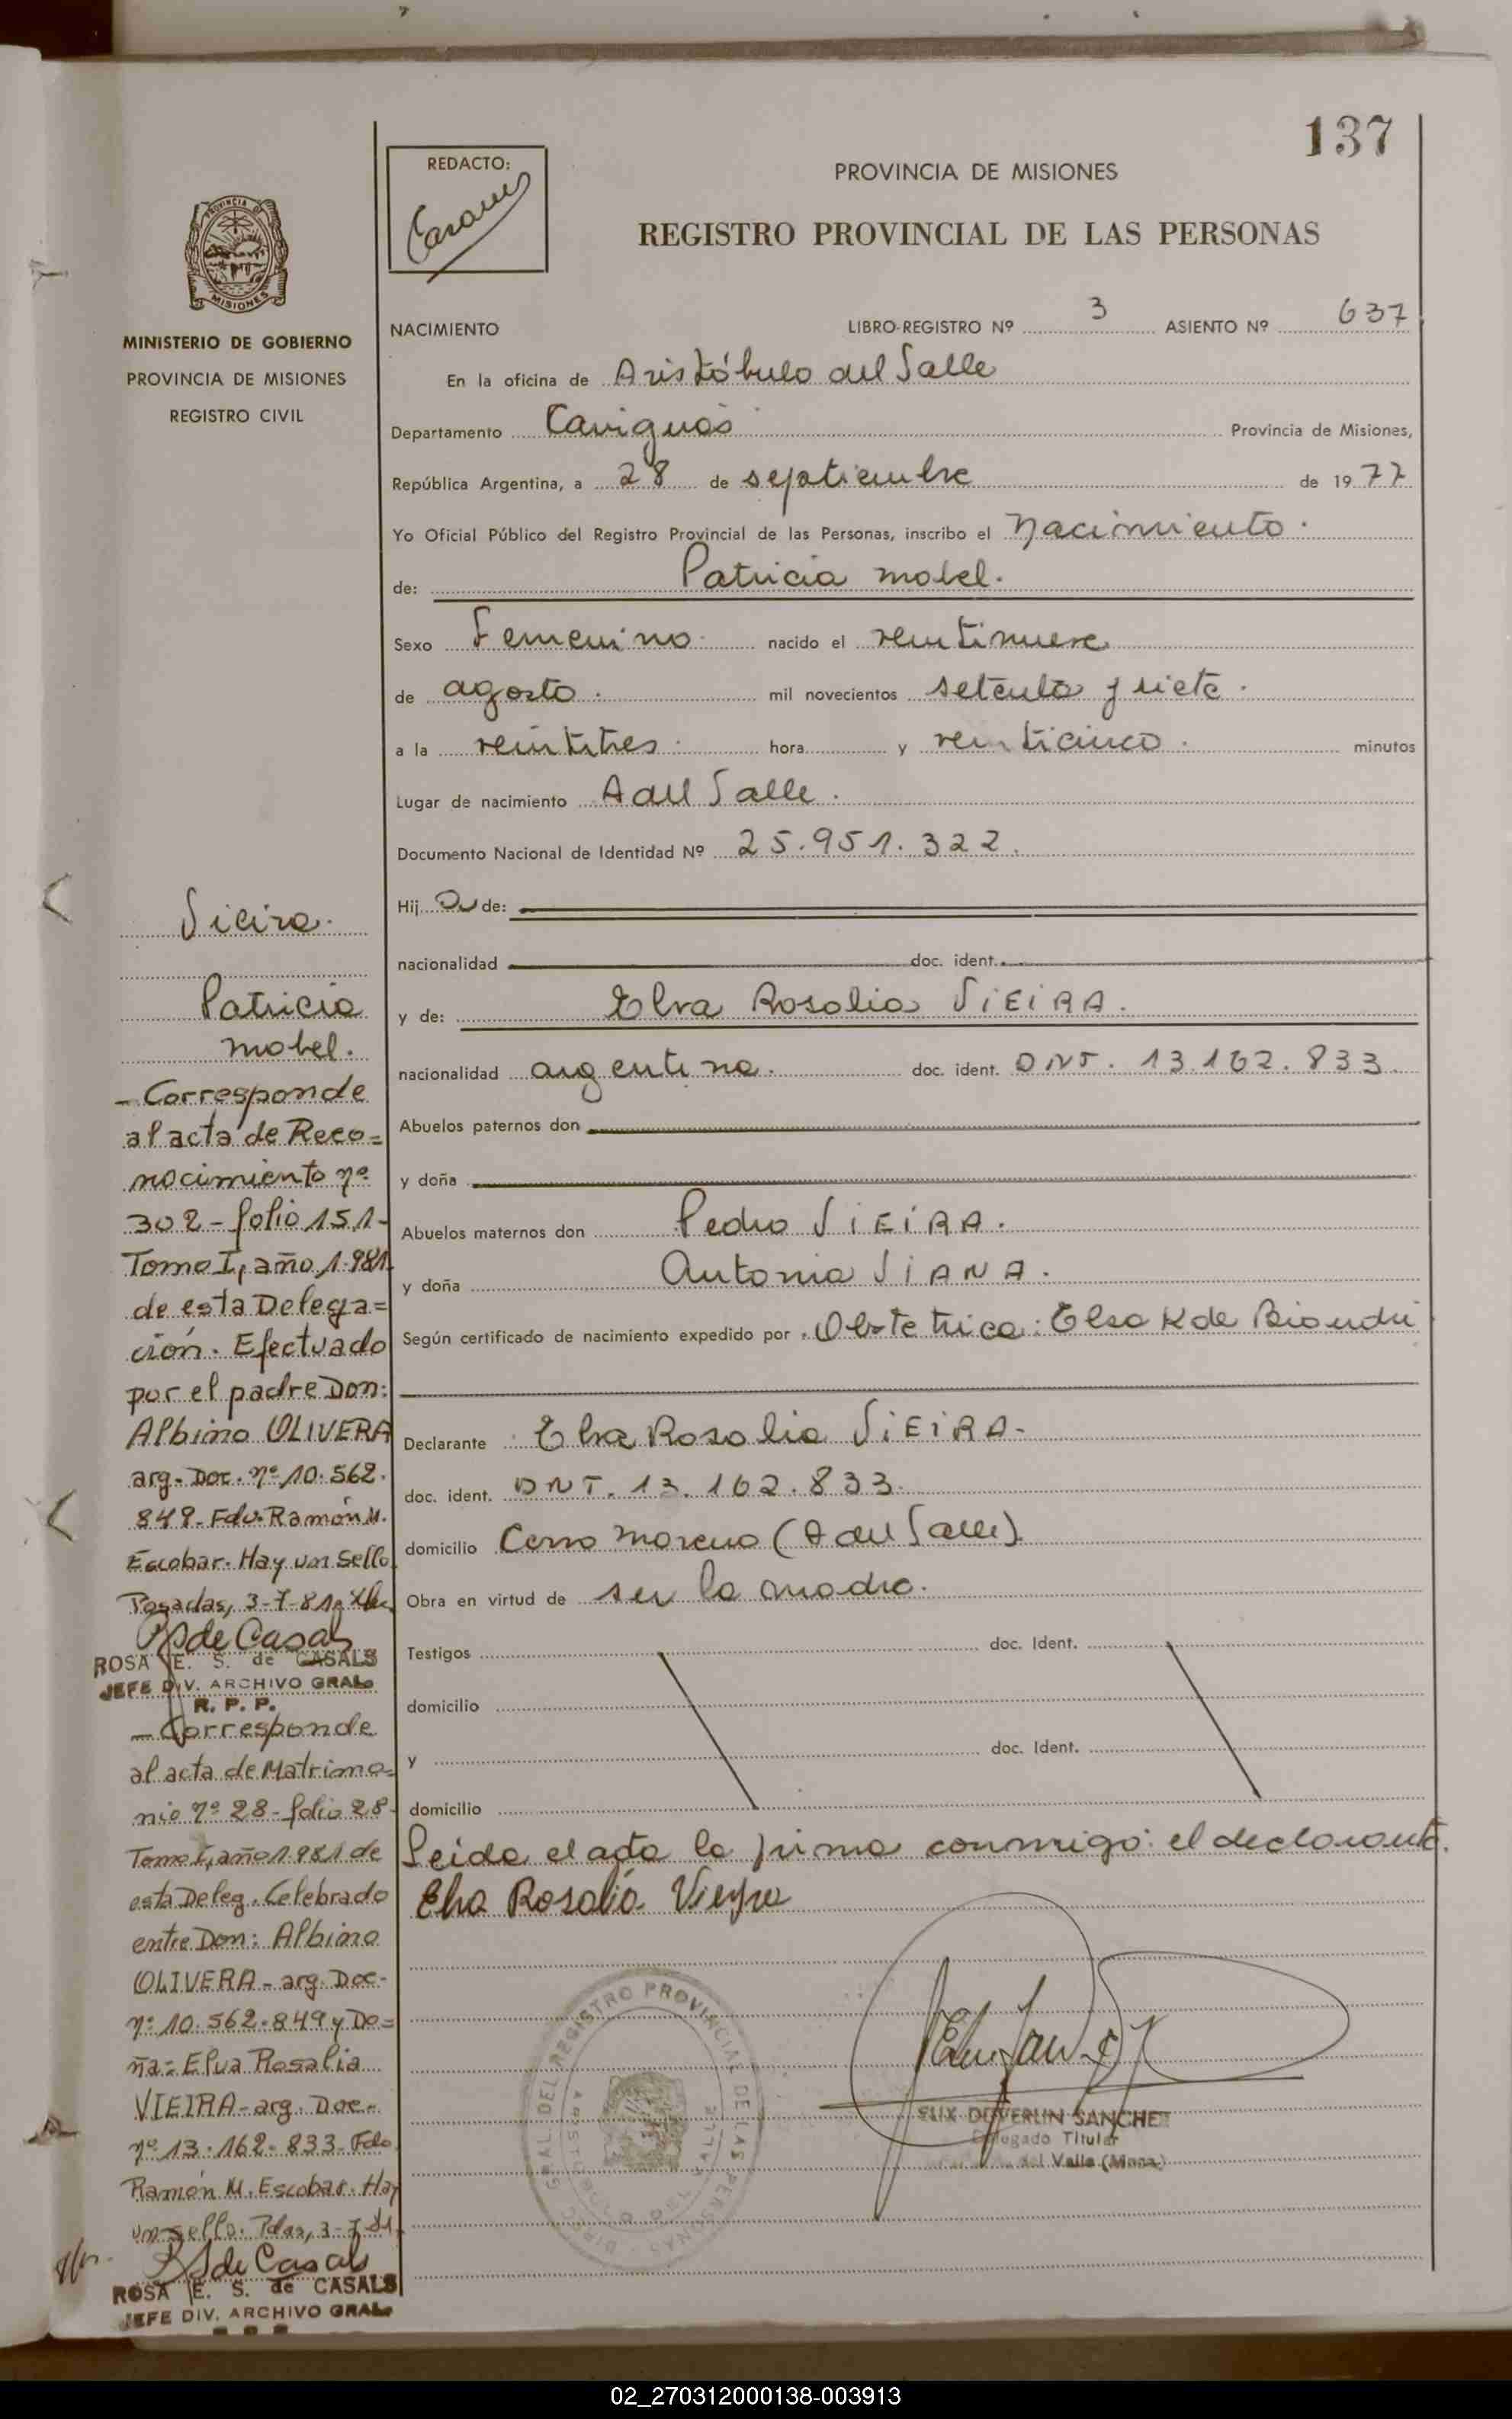 137
REDACTO:
PROVINCIA DE MISIONES
REGISTRO PROVINCIAL DE LAS PERSONAS
MINISTERIO DE GOBIERNO
PROVINCIA DE MISIONES
REGISTRO CIVIL
NACIMIENTO LIBRO-REGISTRO Nº 3 ASIENTO Nº 637
En la oficina de Aristóbulo del Valle
Departamento Cainguás Provincia de Misiones,
República Argentina, a 28 de septiembre de 1977
Yo Oficial Público del Registro Provincial de las Personas, inscribo el Nacimiento.
de: Patricia Mabel.
Sexo Femenino. nacido el veintinueve
de agosto. mil novecientos setenta y siete.
a la veintitres. hora y veinticinco. minutos
Lugar de nacimiento A del Valle.
Documento Nacional de Identidad Nº 25.951.322.
Hij a de:
nacionalidad doc. ident.
y de: Elva Rosalia VIEIRA.
nacionalidad argentina. doc. ident. DNI. 13.162.833.
Abuelos paternos don
y doña
Abuelos maternos don Pedro VIEIRA.
y doña Antonia VIANA.
Según certificado de nacimiento expedido por Obstetrica: Elsa K de Biondi
Declarante Elva Rosalia VIEIRA-
doc. ident. DNI. 13.162.833.
domicilio Cerro Moreno (A del Valle)
Obra en virtud de ser la madre.
Testigos doc. Ident.
domicilio
y doc. Ident.
domicilio
Leida el acta la firma conmigo: el declarante.
Elva Rosalia Vieyra
DIREC. GRAL. DEL REGISTRO PROVINCIAL DE LAS PERSONAS
SANCHE
Delegado Titular
del Valle (Mnes)
Vieira.
Patricia
Mabel.
- Corresponde
al acta de Reco=
nocimiento nº
302- folio 151-
Tomo I, año 1.981
de esta Delega=
ción. Efectuado
por el padre Don:
Albino OLIVERA
arg. Doc. nº 10.562.
849. Fdo. Ramón M.
Escobar. Hay un sello
Posadas, 3-7-81
RS de Casals
ROSA E. S. de CASALS
JEFE DIV. ARCHIVO GRAL.
R. P. P.
- Corresponde
al acta de Matrimo=
nio nº 28- folio 28-
Tomo I, año 1.981 de
esta Deleg. Celebrado
entre Don: Albino
OLIVERA - arg. Doc-
nº 10.562.849 y Do=
ña: Elva Rosalia
VIEIRA- arg. Doc-
nº 13.162.833. Fdo
Ramón M. Escobar. Hay
un sello. Pdas, 3-7-81.
RS de Casals
ROSA E. S. de CASALS
JEFE DIV. ARCHIVO GRAL.
02_270312000138-003913